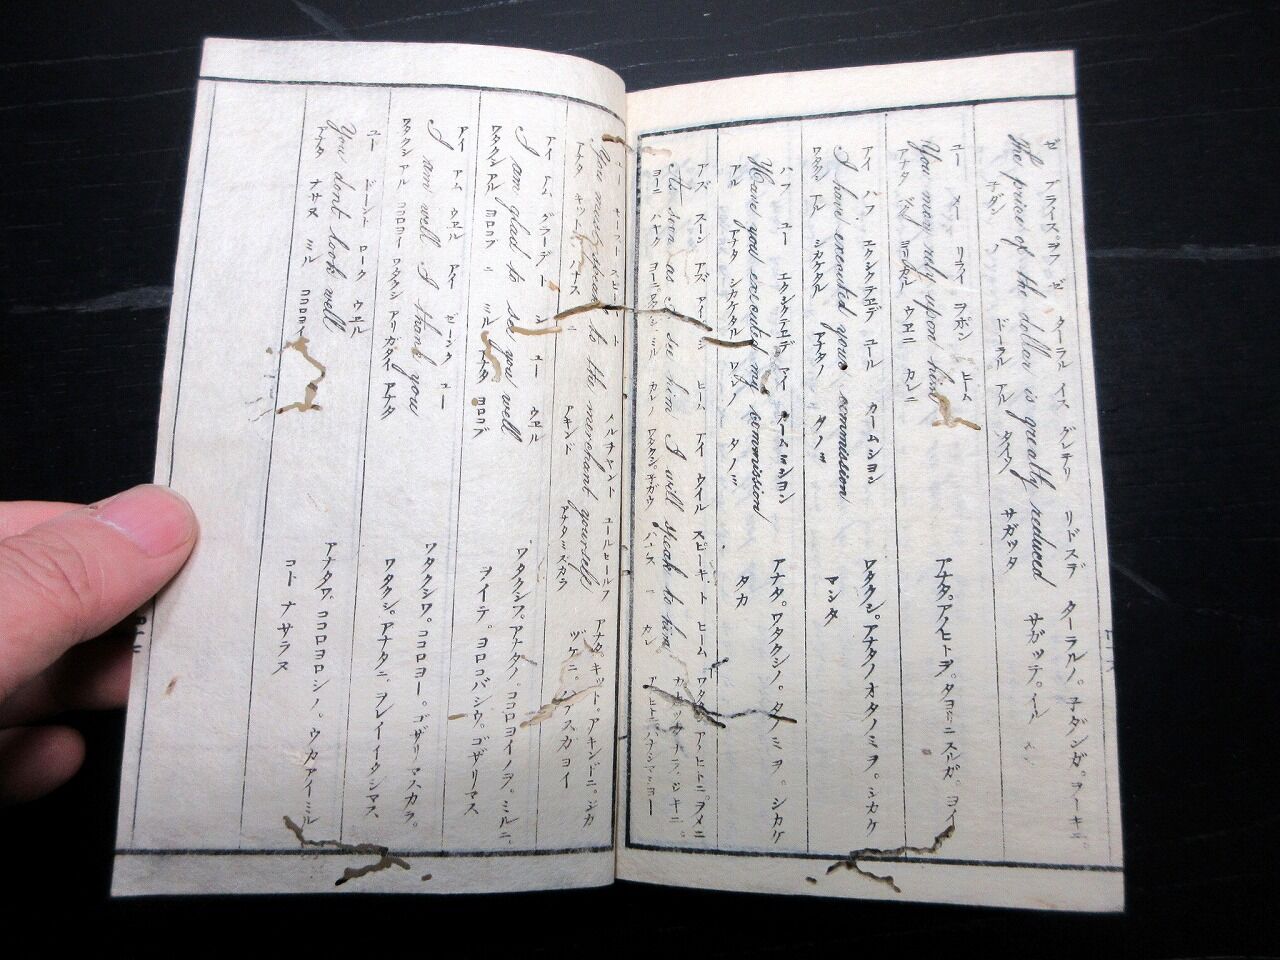 ゼ プライス。ヲフ ゼ ターラル イス グレテリ リドスデ
The price of the dollar is greatly reduced
子ダン ノ ドーラル アル タイソ サガッタ
ターラルノ。子ダンガ。ヲーキニ。
サガッテ。イル
ユー メー リライ ヲポン ヒーム
You may rely upon him
アナタ ヨリカル ウエニ カレニ
アナタ。アノヒトヲ。タヨリニスルガ。ヨイ
アイ ハフ エクシクテエデ ユール カームシヨン
I have executed your commission
ワタクシ アル シカケタル アナタノ タノミ
ワタクシ。アナタノオタノミヲ。シカケ
マシタ
ハフ ユー エクシクテエデ アイ カームミシヨン
Have you executed my commission
アル アナタ シカケタル ワシノ タノミ
アナタ。ワタクシノ。タノミヲ。シカケ
タカ
アズ スーン アズ アイ シ ヒーム アイ ウイル スピーキ。ト ヒーム
As soon as I see him I will speak to him
You must speak to the merchant yourself
アナタ キット ハナス ニ アキンド アナタミズカラ
アナタ。キット。アキンドニ。ジカ
ヅケニ。ハナスガヨイ
アイ アム グラーデ ト シー ユー ウエル
I am glad to see you well
ワタクシ アル ヨロコブ ニ ミル アナタ ヨロコブ
ワタクシワ。アナタノ。ココロヨイノヲ。ミルニ。
ヲイテ。ヨロコバシウ。ゴザリマス
アイ アム ウエル アイ ゼーンク ユー
I am well I thank you
ワタクシ アル ココロヨー ワタクシ アリガタイ アナタ
ワタクシワ。ココロヨー。ゴザリマスカラ。
ワタクシ。アナタニ。ヲレイイタシマス
ユー ドーント ローク ウエル
You dont look well
アナタ ナサヌ ミル ココロヨイ
アナタワ。ココロヨロシノ。ウカアイミル
コト ナサラヌ